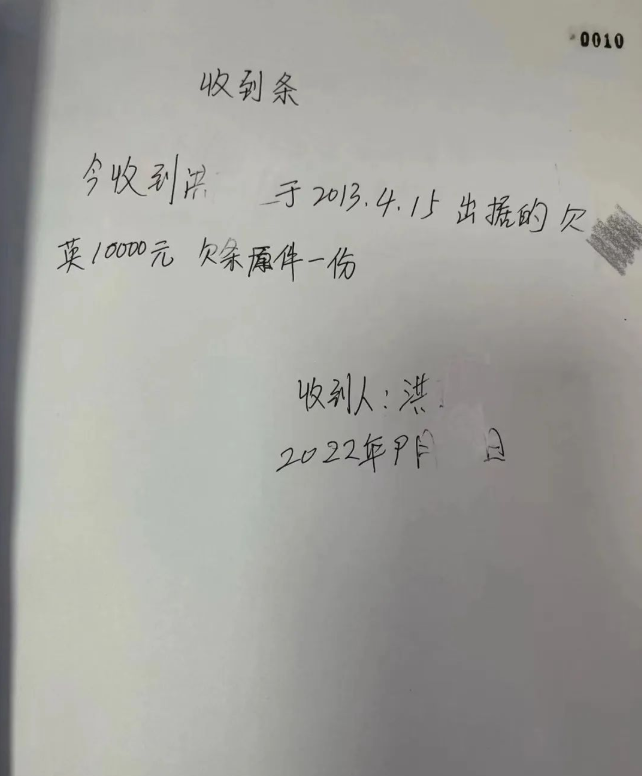 0010
收到条
今收到洪 于2013.4.15出据的欠
英10000元 欠条原件一份
收到人:洪
2022年9月 日